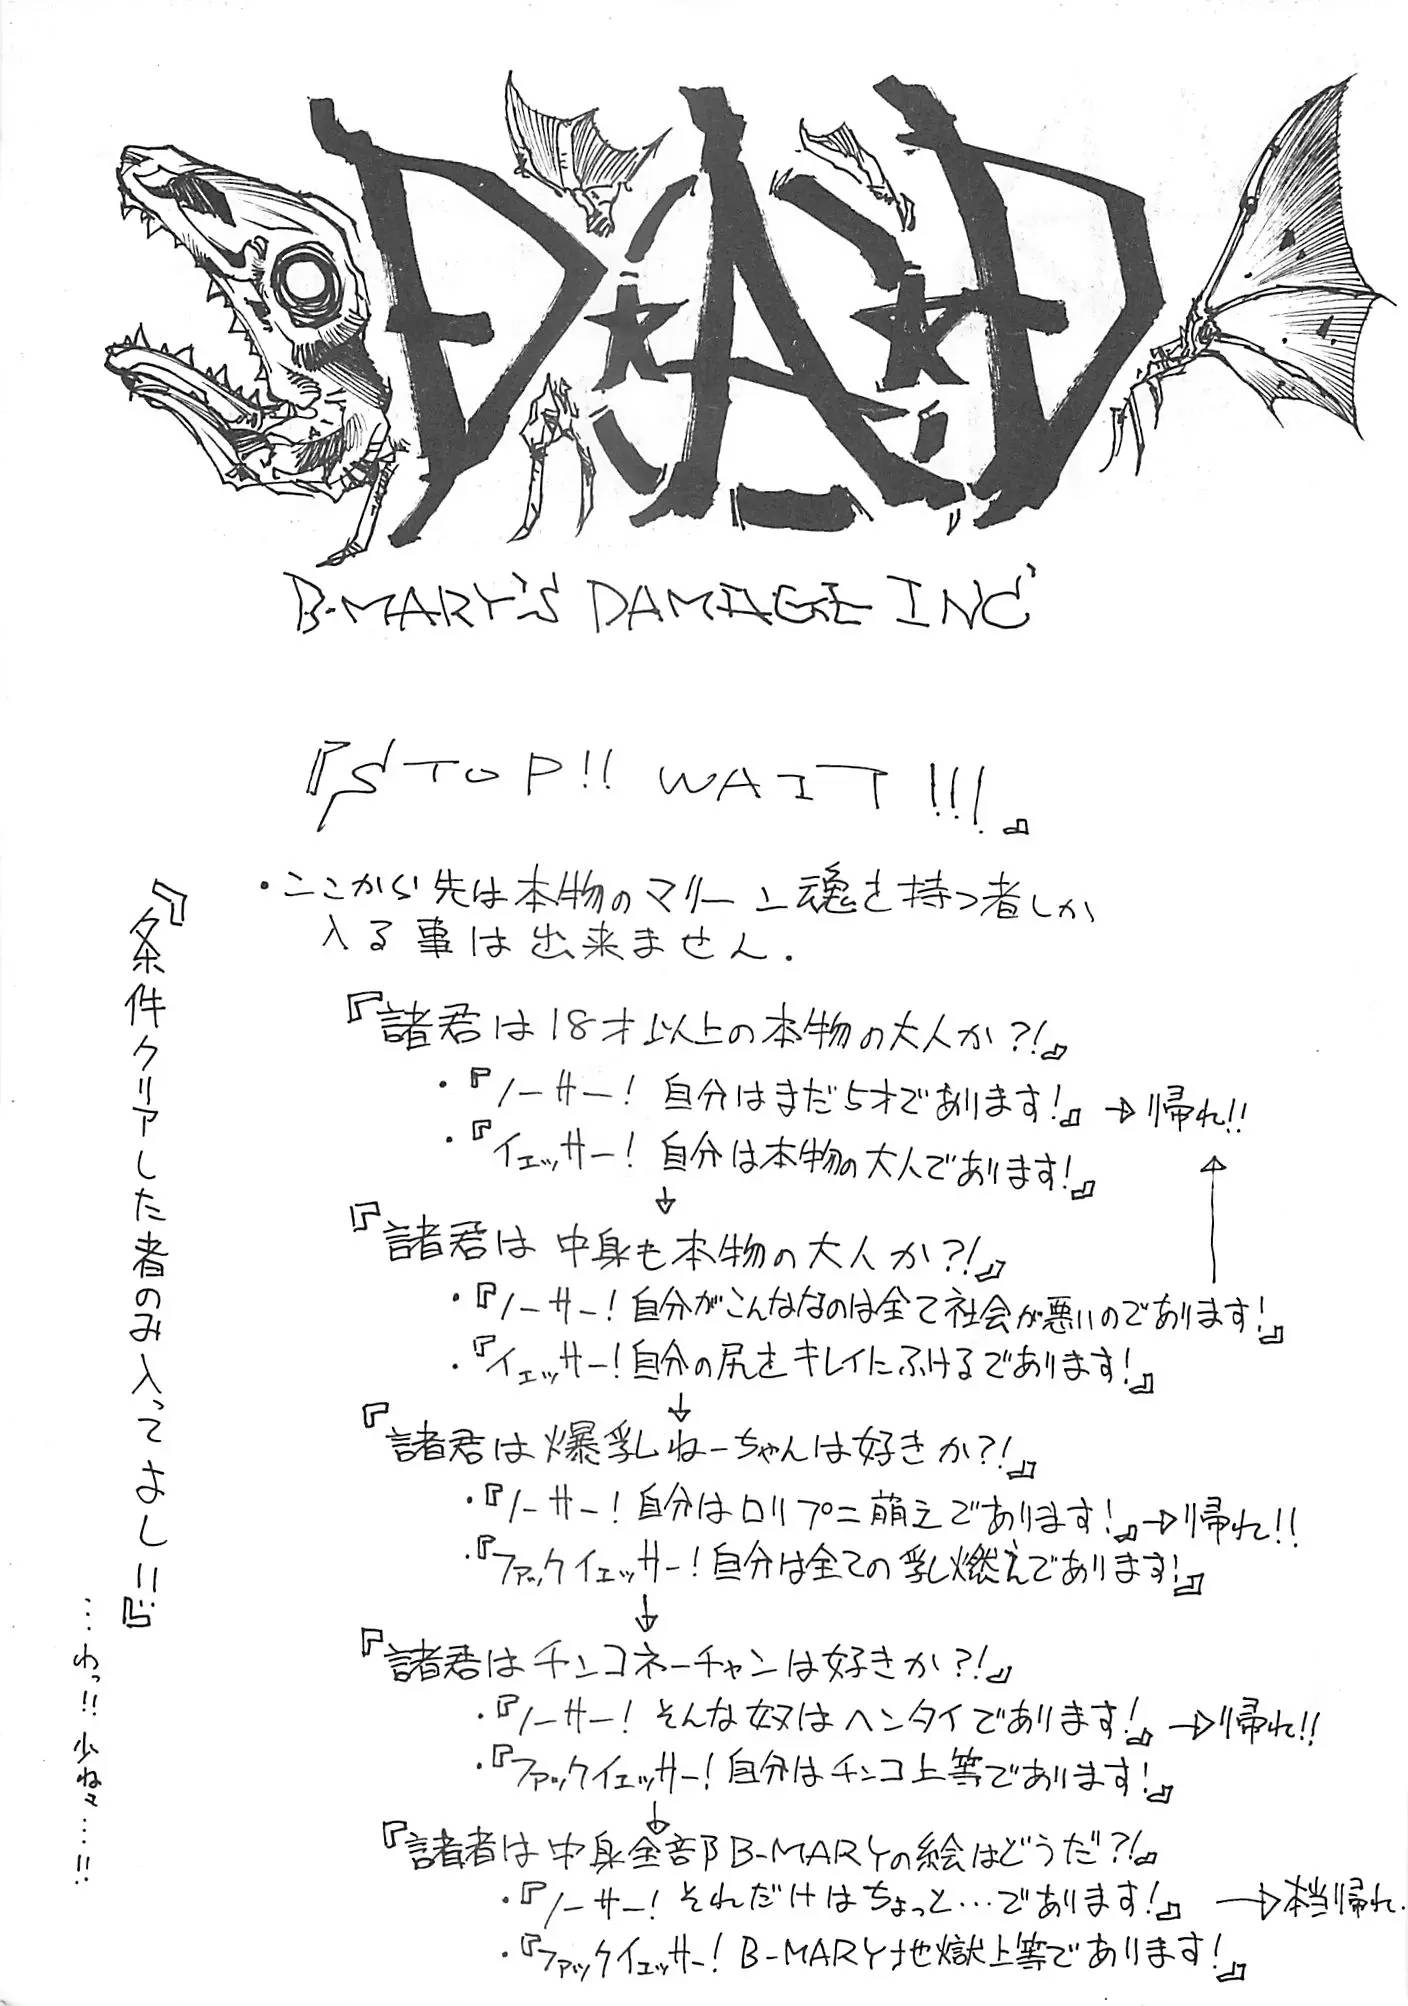 DEAD
B-MARY'S DAMAGE INC'
『STOP!! WAIT!!!』
・ここから先は本物のマリーン魂を持つ者しか
入る事は出来ません.
『諸君は18才以上の本物の大人か?!』
・『ノーサー! 自分はまだ5才であります!』→帰れ!!
・『イエッサー! 自分は本物の大人であります!』
↓
『諸君は中身も本物の大人か?!』
・『ノーサー!自分がこんななのは全て社会が悪いのであります!』
・『イエッサー!自分の尻をキレイにふけるであります!』
↓
『諸君は爆乳ねーちゃんは好きか?!』
・『ノーサー!自分はロリプニ萌えであります!』→帰れ!!
・『ファックイエッサー!自分は全ての乳燃えであります!』
↓
『諸君はチンコネーチャンは好きか?!』
・『ノーサー! そんな奴はヘンタイであります!』→帰れ!!
・『ファックイエッサー!自分はチンコ上等であります!』
↓
『諸者は中身全部B-MARYの絵はどうだ?!』
・『ノーサー! それだけはちょっと…であります!』→本当帰れ.
・『ファックイエッサー! B-MARY地獄上等であります!』
『条件クリアした者のみ入ってよし!!』
…わっ!! 少ねぇ…!!